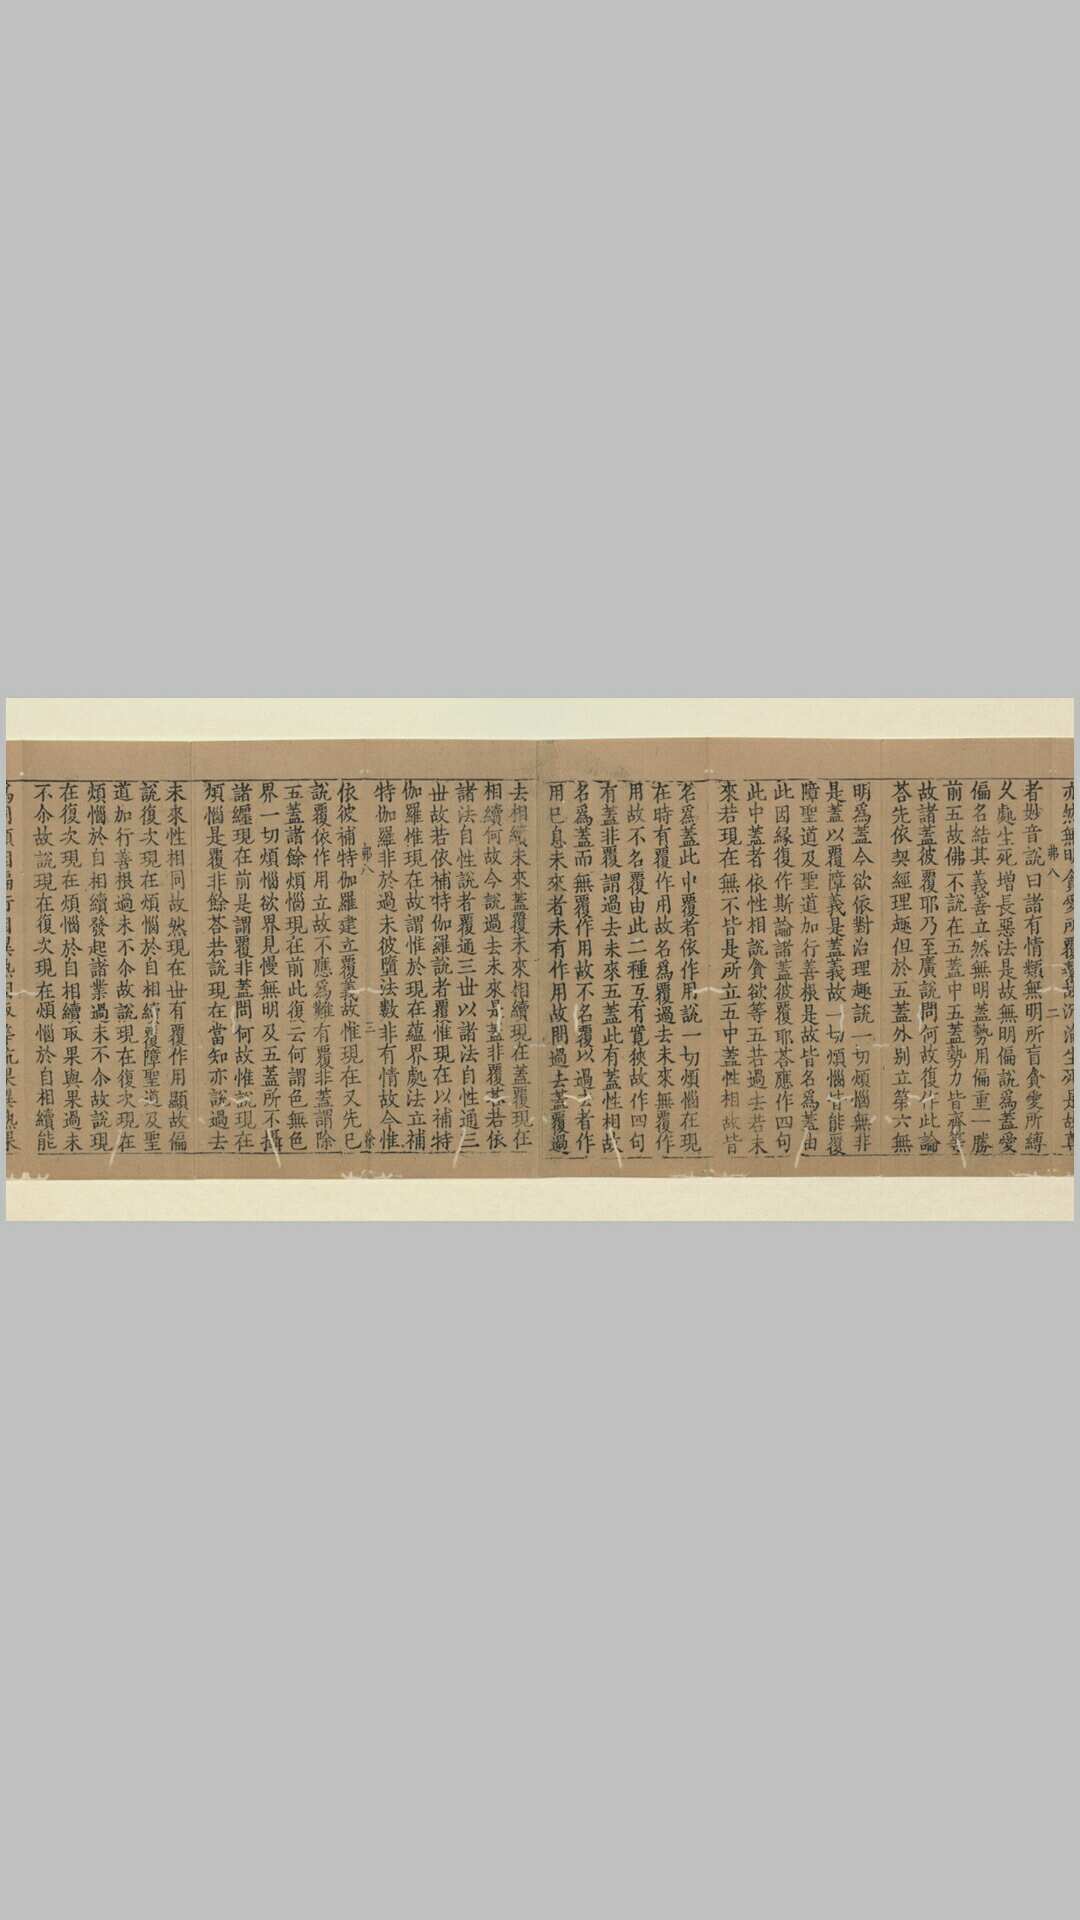 者妙音說曰諸有情類無明所盲貪愛所縛
久處生死增長惡法是故無明偏說爲蓋愛
偏名結其義善立然無明蓋勢用偏重一勝
前五故佛不說在五蓋中五蓋勢力皆齊等
故諸蓋彼覆耶乃至廣說問何故復作此論
荅先依契經理趣但於五蓋外別立第六無
明爲蓋今欲依對治理趣說一切煩惱無非
是蓋以覆障義是蓋義故一切煩惱皆能覆
障聖道及聖道加行善根是故皆名爲蓋由
此因緣復作斯論諸蓋彼覆耶荅應作四句
此中蓋者依性相說貪欲等五若過去若未
來若現在無不皆是所立五中蓋性相故皆
名爲蓋此中覆者依作用說一切煩惱在現
在時有覆作用故名爲覆過去未來無覆作
用故不名覆由此二種互有寬狹故作四句
有蓋非覆謂過去未來五蓋此有蓋性相故
名爲蓋而無覆作用故不名覆以過去者作
用已息未來者未有作用故問過去蓋覆過
去相續未來蓋覆未來相續現在蓋覆現在
相續何故今說過去未來是蓋非覆荅若依
諸法自性說者覆通三世以諸法自性通三
世故若依補特伽羅說者覆惟現在以補特
伽羅惟現在故謂惟於現在蘊界處法立補
特伽羅非於過未彼墮法數非有情故今惟
弟八 三
依彼補特伽羅建立覆義故惟現在又先已
說覆依作用立故不應爲難有覆非蓋謂除
五蓋諸餘煩惱現在前此復云何謂色無色
界一切煩惱欲界見慢無明及五蓋所不攝
諸纏現在前是謂覆非蓋問何故惟說現在
煩惱是覆非餘荅若說現在當知亦說過去
未來性相同故然現在世有覆作用顯故偏
說復次現在煩惱於自相續覆障聖道及聖
道加行善根過未不尒故說現在復次現在
煩惱於自相續發起諸業過未不尒故說現
在復次現在煩惱於自相續取果與果過未
不尒故說現在復次現在煩惱於自相續能